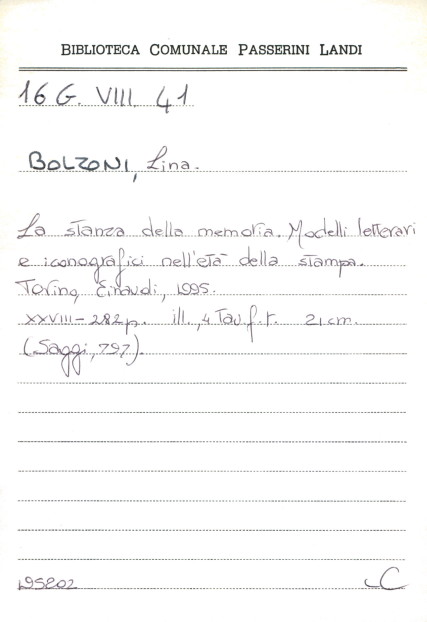 BIBLIOTECA COMUNALE PASSERINI LANDI
16 G. VIII. 41
BOLZONI, Lina.
La stanza della memoria. Modelli letterari
e iconografici nell'età della stampa.
Torino, Einaudi, 1995.
XXVIII-282p. ill., 4 Tav. f.t. 21 cm.
(Saggi, 797).
195202
C